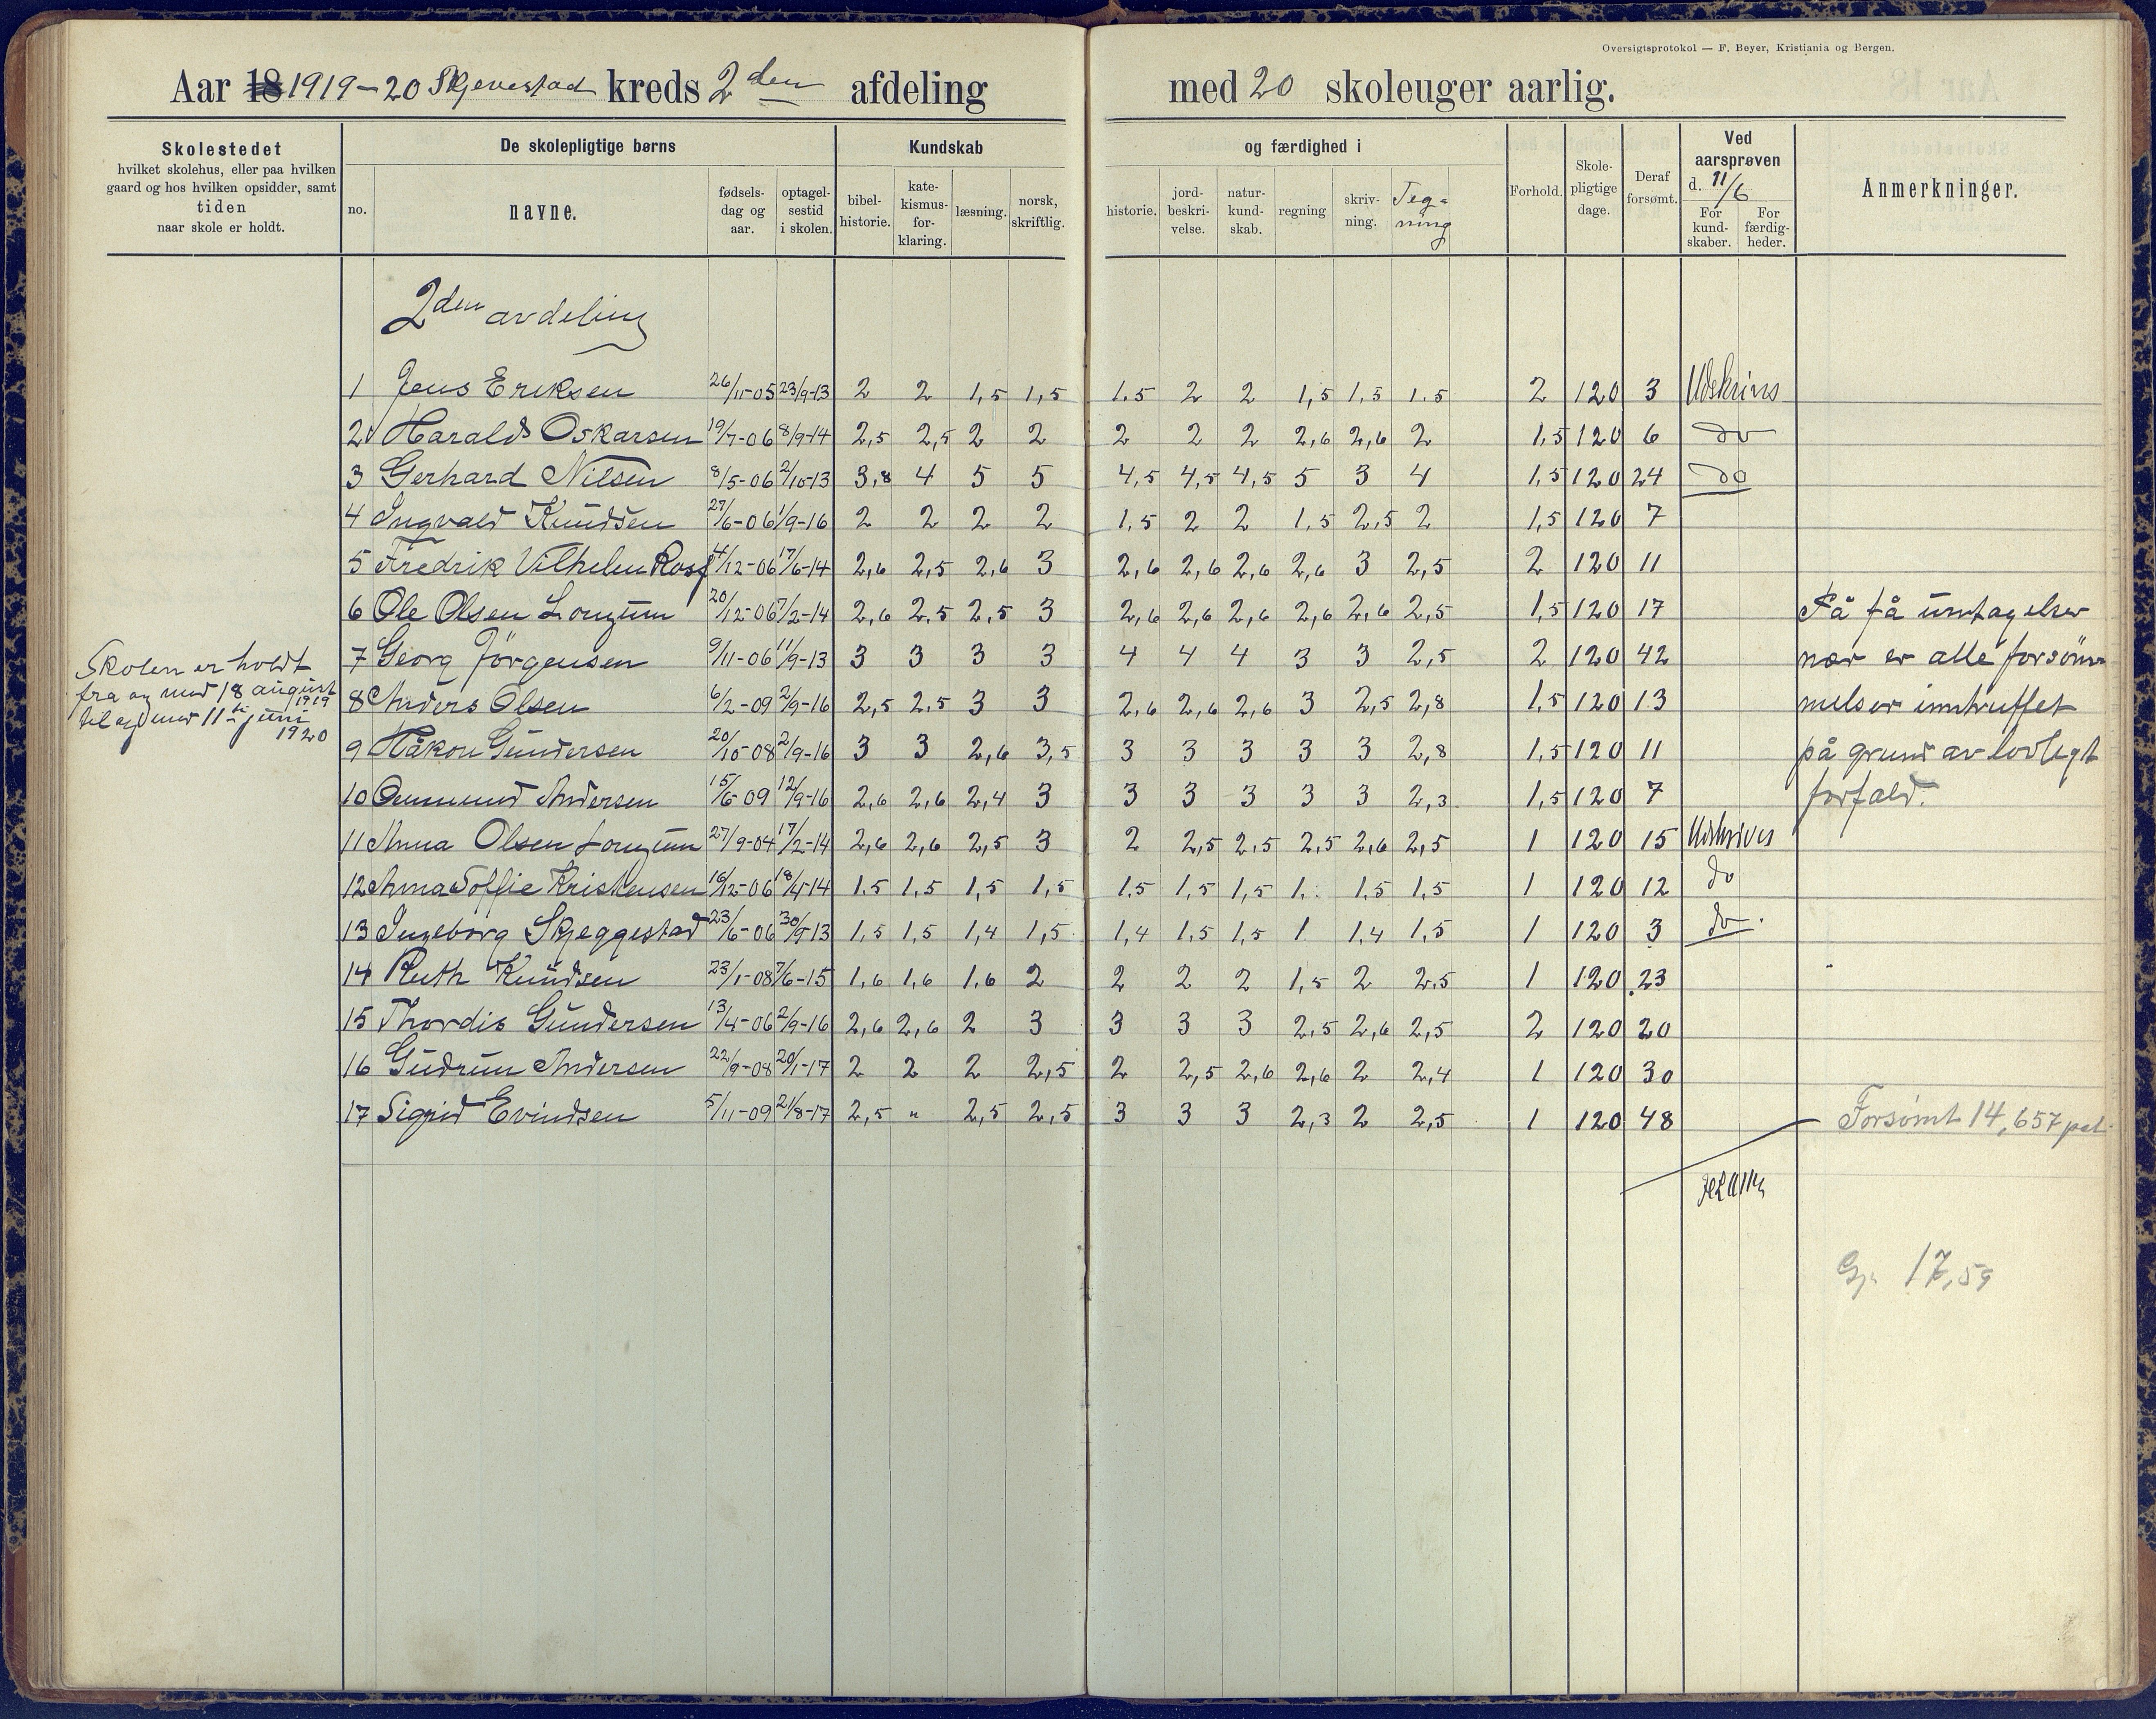 Oversigtsprotokol — F. Beyer, Kristiania og Bergen.
Aar 18 1919-20 Skjevestad kreds 2den afdeling med 20 skoleuger aarlig.
Skolestedet
hvilket skolehus, eller paa hvilken
gaard og hos hvilken opsidder, samt
tiden
naar skole er holdt.
De skolepligtige børns
no.
navne.
fødsels-
dag og
aar.
optagel-
sestid
i skolen.
Kundskab
bibel-
historie.
kate-
kismus-
for-
klaring.
læsning.
norsk,
skriftlig.
og færdighed i
historie.
jord-
beskri-
velse.
natur-
kund-
skab.
regning
skriv-
ning.
Teg-
ning
Forhold.
Skole-
pligtige
dage.
Deraf
forsømt.
Ved
aarsprøven
d. 11/6
For
kund-
skaber.
For
færdig-
heder.
Anmerkninger.
2den avdeling
1 Jens Eriksen 26/11-05 23/9-13 2 2 1,5 1,5 1.5 2 2 1,5 1,5 1.5 2 120 3 Udskrives
2 Harald Oskarsen 19/7-06 8/9-14 2,5 2,5 2 2 2 2 2 2,6 2,6 2 1,5 120 6 do
3 Gerhard Nilsen 8/5-06 2/10-13 3,8 4 5 5 4,5 4,5 4,5 5 3 4 1,5 120 24 do
4 Ingvald Knudsen 27/6-06 1/9-16 2 2 2 2 1,5 2 2 1,5 2,5 2 1,5 120 7
5 Fredrik Vilhelm Rosf 4/12-06 17/6-14 2,6 2,5 2,6 3 2,6 2,6 2,6 2,6 3 2,5 2 120 11
6 Ole Olsen Longum 20/12-06 7/2-14 2,6 2,5 2,5 3 2,6 2,6 2,6 2,6 2,6 2,5 1,5 120 17 På få undtagelser
7 Georg Jörgensen 9/11-06 11/9-13 3 3 3 3 4 4 4 3 3 2,5 2 120 42 nær er alle forsöm-
8 Anders Olsen 6/2-09 2/9-16 2,5 2.5 3 3 2,6 2,6 2,6 3 2,5 2,8 1,5 120 13 melser inntruffet
9 Håkon Gundersen 20/10-08 2/9-16 3 3 2,6 3,5 3 3 3 3 3 2,8 1,5 120 11 på grund av lovlegt
10 Ommund Andersen 15/6-09 12/9-16 2,6 2,6 2,4 3 3 3 3 3 3 2,3 1,5 120 7 forfald.
11 Anna Olsen Longum 27/9-04 17/2-14 2,6 2,6 2,5 3 2 2,5 2.5 2,5 2,6 2,5 1 120 15 Udskrives
12 Anna Soffie Kristensen 16/12-06 18/4-14 1.5 1,5 1,5 1,5 1.5 1,5 1,5 1. 1.5 1,5 1 120 12 do
13 Ingeborg Skjeggestad 23/6-06 30/9-13 1,5 1,5 1,4 1,5 1,4 1,5 1,5 1 1,4 1,5 1 120 3 do.
14 Ruth Knudsen 23/1-08 7/6-15 1,6 1,6 1.6 2 2 2 2 1,5 2 2.5 1 120 23
15 Thordis Gundersen 13/4-06 2/9-16 2,6 2,6 2 3 3 3 3 2,5 2,6 2,5 2 120 20
16 Gudrun Andersen 22/9-08 20/1-17 2 2 2 2,5 2 2,5 2,6 2,6 2 2,4 1 120 30
17 Sigrid Evindsen 5/11-09 21/8-17 2,5 " 2,5 2,5 3 3 3 2,3 2 2,5 1 120 48 Forsømt 14,657 pct.
Skolen er holdt
fra og med 18 august
1919
til og med 11te juni
1920
17,59